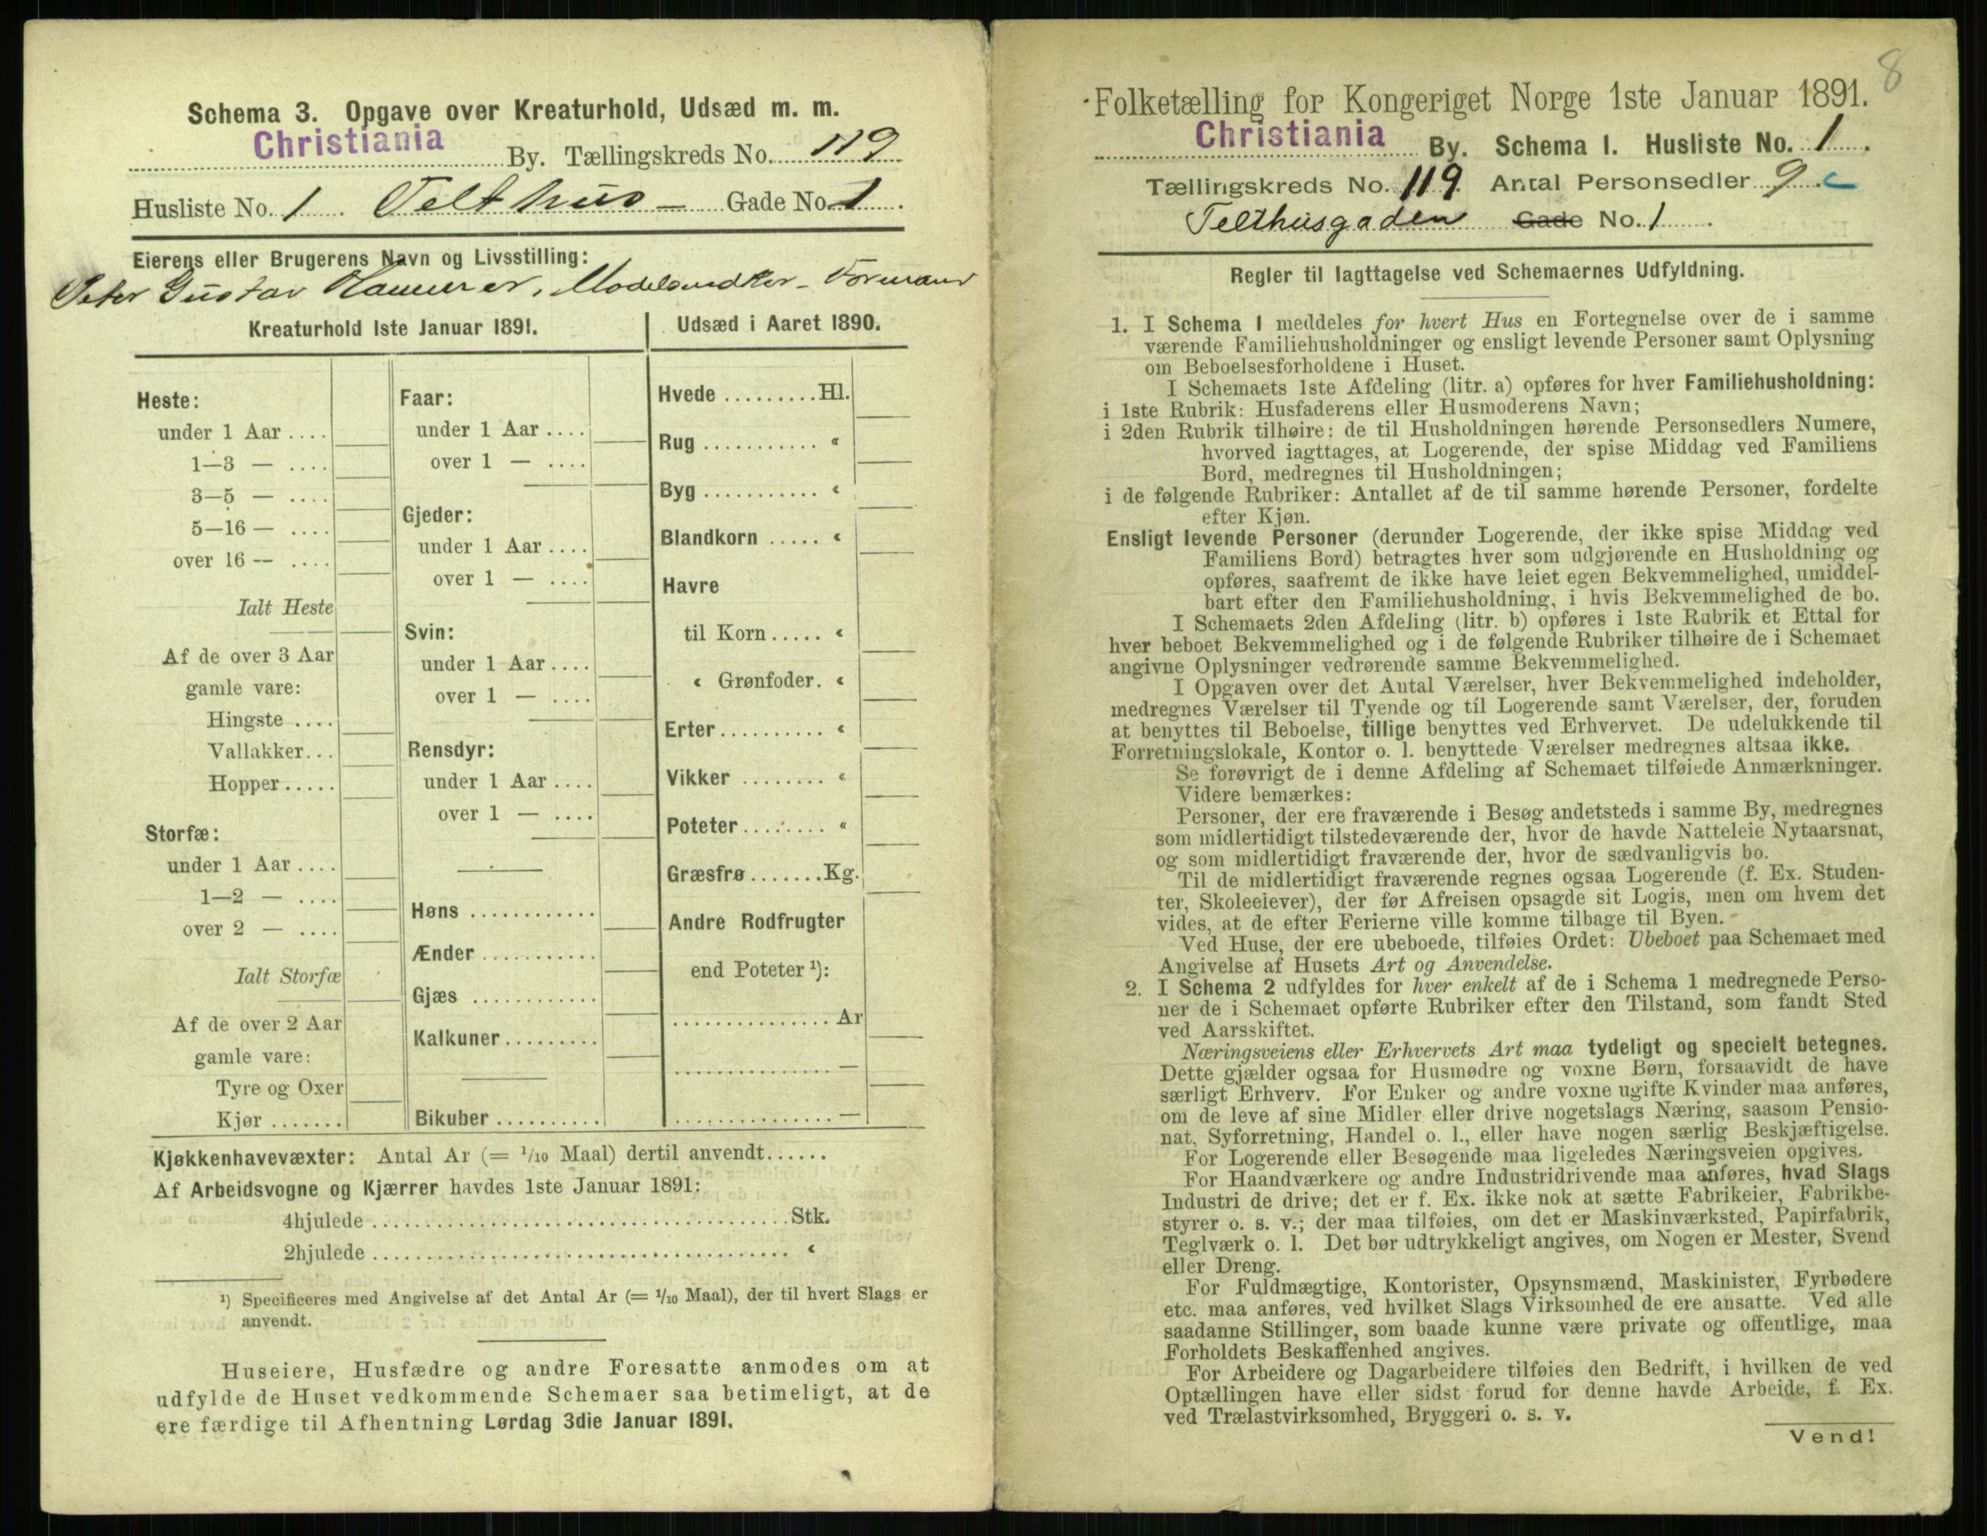 Schema 3. Opgave over Kreaturhold, Udsæd m. m.
Christiania By. Tællingskreds No. 119
Husliste No. 1 Telthus Gade No. 1
Eierens eller Brugerens Navn og Livsstilling:
Peter Gustav Hammer, Modelsnedker-Formand
Kreaturhold 1ste Januar 1891.
Heste:
under 1 Aar ....
1—3 — ....
3—5 — ....
5—16 — ....
over 16 — ....
Ialt Heste
Af de over 3 Aar
gamle vare:
Hingste ....
Vallakker...
Hopper.....
Storfæ:
under 1 Aar ....
1—2 — ....
over 2 — ....
Ialt Storfæ
Af de over 2 Aar
gamle vare:
Tyre og Oxer
Kjør .......
Faar:
under 1 Aar ....
over 1 — ....
Gjeder:
under 1 Aar ....
over 1 — ....
Svin:
under 1 Aar ....
over 1 — ....
Rensdyr:
under 1 Aar ....
over 1 — ....
Høns ............
Ænder ...........
Gjæs ............
Kalkuner.........
Bikuber ..........
Udsæd i Aaret 1890.
Hvede .........Hl.
Rug ........... «
Byg ........... «
Blandkorn ..... «
Havre
til Korn ..... «
« Grønfoder. «
Erter.......... «
Vikker ........ «
Poteter ........ «
Græsfrø .......Kg.
Andre Rodfrugter
end Poteter ¹):
............... Ar
............... —
............... —
Kjøkkenhavevæxter: Antal Ar (= 1/10 Maal) dertil anvendt......
Af Arbeidsvogne og Kjærrer havdes 1ste Januar 1891:
4hjulede ....................................Stk.
2hjulede .................................... «
¹) Specificeres med Angivelse af det Antal Ar (= 1/10 Maal), der til hvert Slags er
anvendt.
Huseiere, Husfædre og andre Foresatte anmodes om at
udfylde de Huset vedkommende Schemaer saa betimeligt, at de
ere færdige til Afhentning Lørdag 3die Januar 1891.
8
Folketælling for Kongeriget Norge 1ste Januar 1891.
Christiania By. Schema 1. Husliste No. 1
Tællingskreds No. 119 Antal Personsedler 9
Telthusgaden Gade No. 1
Regler til Iagttagelse ved Schemaernes Udfyldning.
1. I Schema 1 meddeles for hvert Hus en Fortegnelse over de i samme
værende Familiehusholdninger og ensligt levende Personer samt Oplysning
om Beboelsesforholdene i Huset.
I Schemaets 1ste Afdeling (litr. a) opføres for hver Familiehusholdning:
i 1ste Rubrik: Husfaderens eller Husmoderens Navn;
i 2den Rubrik tilhøire: de til Husholdningen hørende Personsedlers Numere,
hvorved iagttages, at Logerende, der spise Middag ved Familiens
Bord, medregnes til Husholdningen;
i de følgende Rubriker: Antallet af de til samme hørende Personer, fordelte
efter Kjøn.
Ensligt levende Personer (derunder Logerende, der ikke spise Middag ved
Familiens Bord) betragtes hver som udgjørende en Husholdning og
opføres, saafremt de ikke have leiet egen Bekvemmelighed, umiddel-
bart efter den Familiehusholdning, i hvis Bekvemmelighed de bo.
I Schemaets 2den Afdeling (litr. b) opføres i 1ste Rubrik et Ettal for
hver beboet Bekvemmelighed og i de følgende Rubriker tilhøire de i Schemaet
angivne Oplysninger vedrørende samme Bekvemmelighed.
I Opgaven over det Antal Værelser, hver Bekvemmelighed indeholder,
medregnes Værelser til Tyende og til Logerende samt Værelser, der, foruden
at benyttes til Beboelse, tillige benyttes ved Erhvervet. De udelukkende til
Forretningslokale, Kontor o. l. benyttede Værelser medregnes altsaa ikke.
Se forøvrigt de i denne Afdeling af Schemaet tilføiede Anmærkninger.
Videre bemærkes:
Personer, der ere fraværende i Besøg andetsteds i samme By, medregnes
som midlertidigt tilstedeværende der, hvor de havde Natteleie Nytaarsnat,
og som midlertidigt fraværende der, hvor de sædvanligvis bo.
Til de midlertidigt fraværende regnes ogsaa Logerende (f. Ex. Studen-
ter, Skoleeiever), der før Afreisen opsagde sit Logis, men om hvem det
vides, at de efter Ferierne ville komme tilbage til Byen.
Ved Huse, der ere ubeboede, tilføies Ordet: Ubeboet paa Schemaet med
Angivelse af Husets Art og Anvendelse.
2. I Schema 2 udfyldes for hver enkelt af de i Schema 1 medregnede Perso-
ner de i Schemaet opførte Rubriker efter den Tilstand, som fandt Sted
ved Aarsskiftet.
Næringsveiens eller Erhvervets Art maa tydeligt og specielt betegnes.
Dette gjælder ogsaa for Husmødre og voxne Børn, forsaavidt de have
særligt Erhverv. For Enker og andre voxne ugifte Kvinder maa anføres,
om de leve af sine Midler eller drive nogetslags Næring, saasom Pensio-
nat, Syforretning, Handel o. l., eller have nogen særlig Beskjæftigelse.
For Logerende eller Besøgende maa ligeledes Næringsveien opgives.
For Haandværkere og andre Industridrivende maa anføres, hvad Slags
Industri de drive; det er f. Ex. ikke nok at sætte Fabrikeier, Fabrikbe-
styrer o. s. v.; der maa tilføies, om det er Maskinværksted, Papirfabrik,
Teglværk o. l. Det bør udtrykkeligt angives, om Nogen er Mester, Svend
eller Dreng.
For Fuldmægtige, Kontorister, Opsynsmænd, Maskinister, Fyrbødere
etc. maa anføres, ved hvilket Slags Virksomhed de ere ansatte. Ved alle
saadanne Stillinger, som baade kunne være private og offentlige, maa
Forholdets Beskaffenhed angives.
For Arbeidere og Dagarbeidere tilføies den Bedrift, i hvilken de ved
Optællingen have eller sidst forud for denne havde Arbeide, f. Ex.
ved Trælastvirksomhed, Bryggeri o. s. v.
Vend!